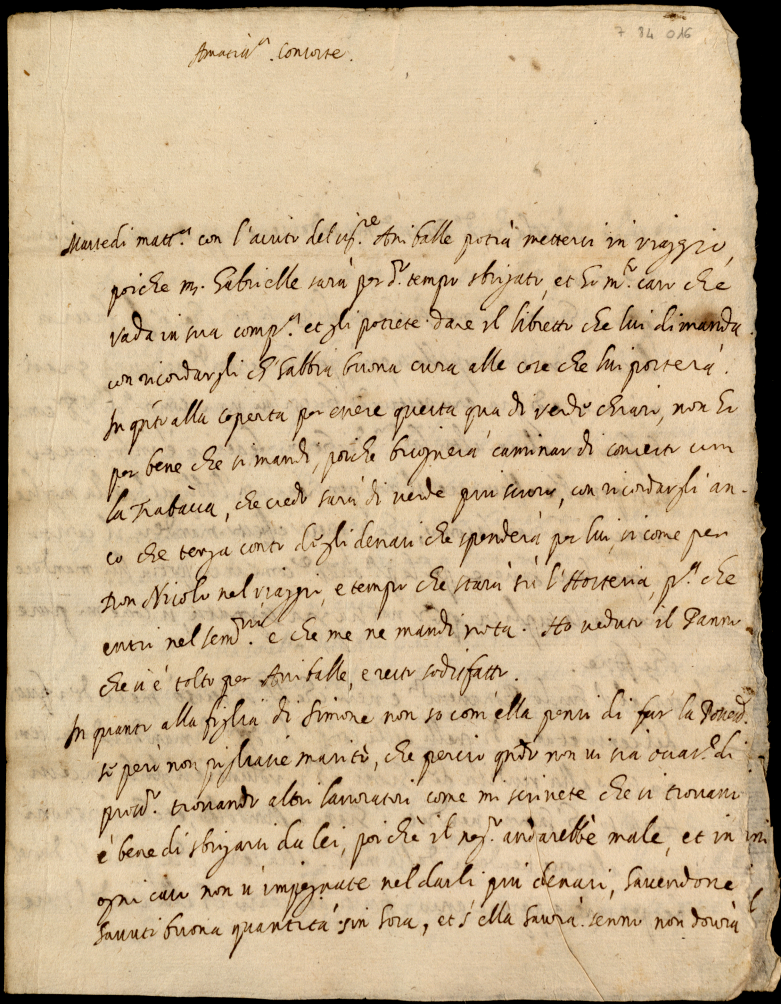 7 84 016
Amatis.ma Consorte.
Martedi matt.a con l'aiuto del Sig.re Aniballe potrà mettersi in viaggio,
poiche ms. Gabrielle sarà per d.o tempo sbrigato, et hò m.o caro che
vada in sua comp.a et gli potrete dare il libretto che lui dimanda
con ricordargli ch'habbia buona cura alle cose che lui porterà.
In q.to alla coperta per essere questa qua di verde chiaro, non hò
per bene che si mandi, poiche bisognerà caminar di concerto con
la Trabacca, che credo sarà di verde piu scuro, con ricordargli an-
co che tenga conto degli denari che spenderà per lui, si come per
Don Nicolo nel viaggio, e tempo che starà sù l'Hosteria, p.a che
entri nel sem.rio e che me ne mandi nota. Ho veduto il Panno
che si è tolto per Aniballe, e resto sodisfatto.
In quanto alla figlia di Simone non so com'ella pensi di far la
se però non pigliasse marito, che perciò q.ndo non vi sia di
trovando altri lavoratori come mi scrivete che si trovano
è bene di sbrigarsi da lei, poi chè il neg.o andarebbe male, et in
ogni caso non v'impegnate nel darli piu denari, havendone
havuti buona quantità sin hora, et s'ella havrà senno non dovrà